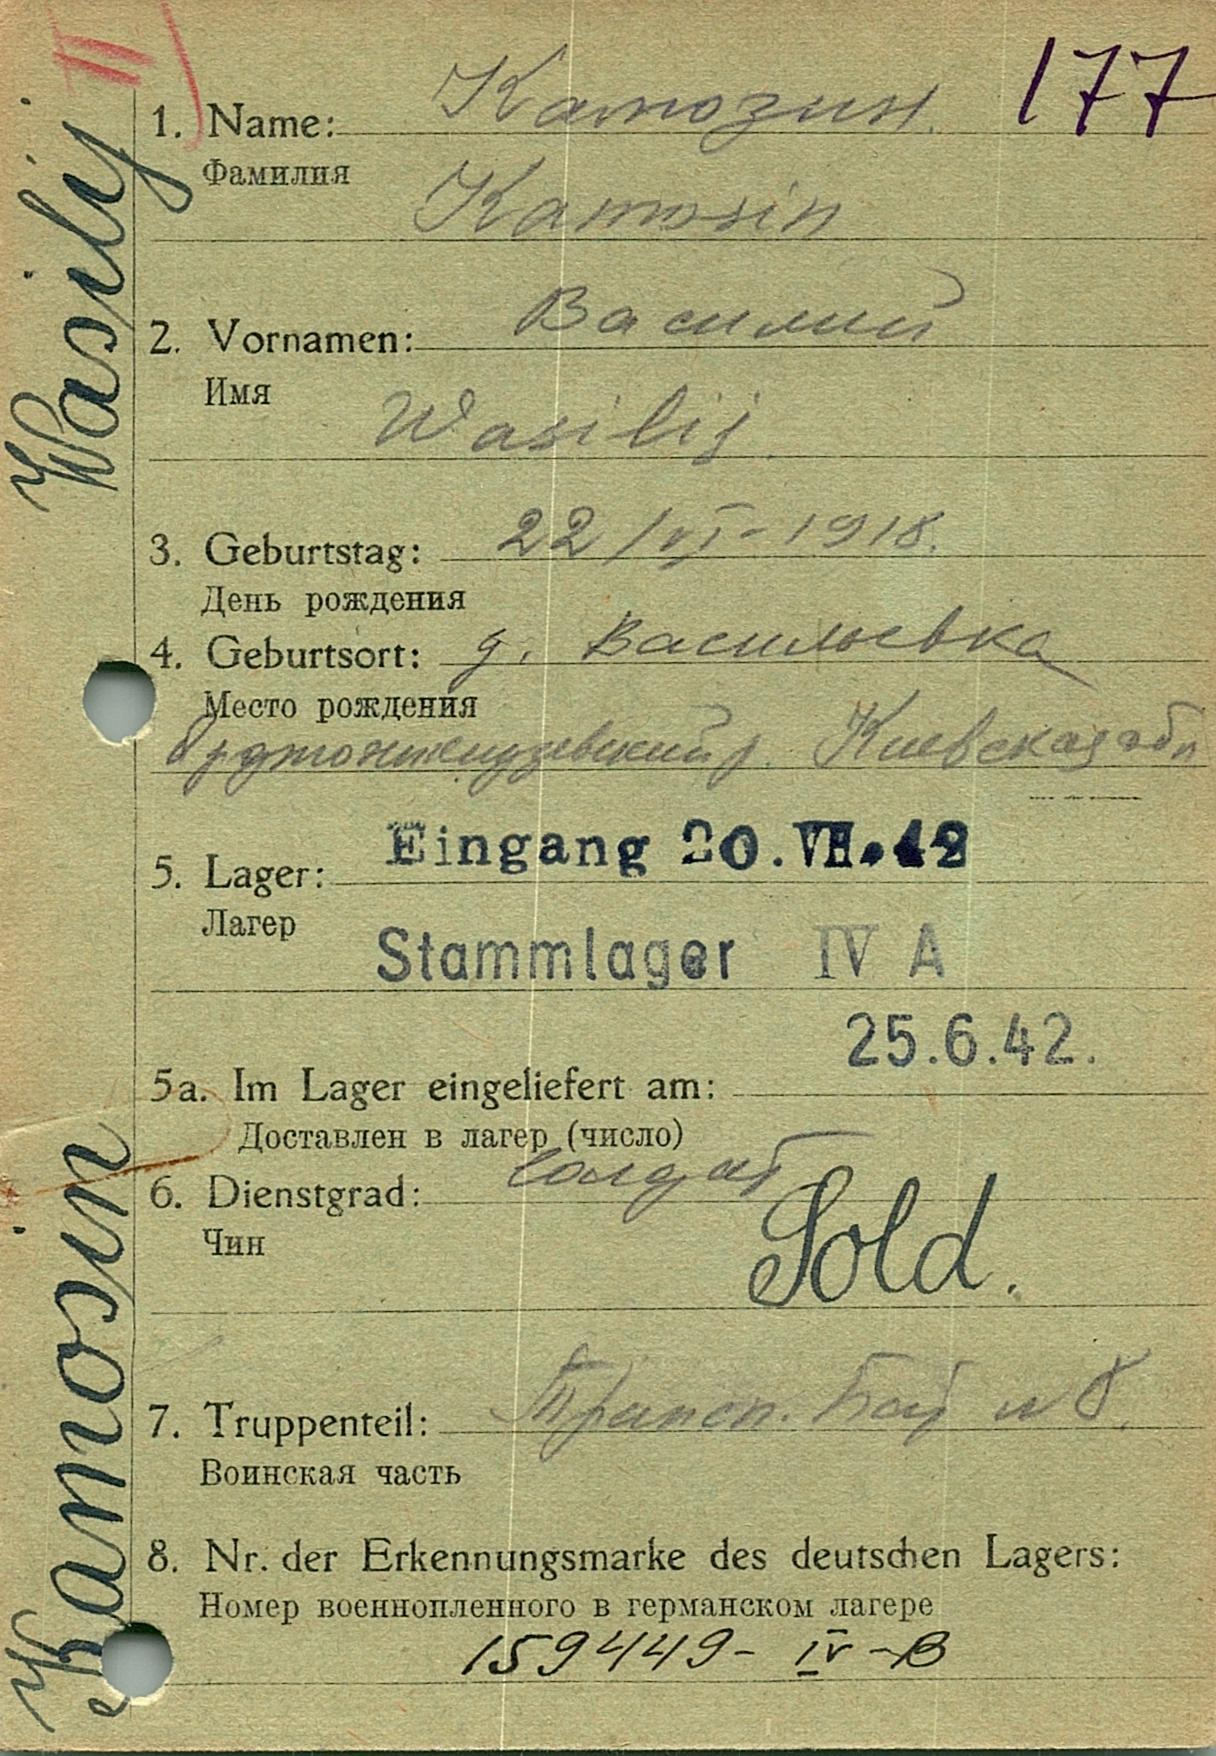 II)
177
1. Name: Камозин.
Фамилия
Kamosin
2. Vornamen: Василий
Имя
Wasilij.
3. Geburtstag: 22/VI-1918.
День рождения
4. Geburtsort: д. Васильевка
Место рождения
Орджоникидзевский р. Киевская обл
5. Lager: Eingang 20.VII.42
Лагер
Stammlager IV A
25.6.42.
5a. Im Lager eingeliefert am:
Доставлен в лагер (число)
6. Dienstgrad: Солдат
Чин
Sold.
7. Truppenteil: Трансп. Бат N 8.
Воинская часть
8. Nr. der Erkennungsmarke des deutschen Lagers:
Номер военнопленного в германском лагере
159449- IV -B
Kamosin Wasilij